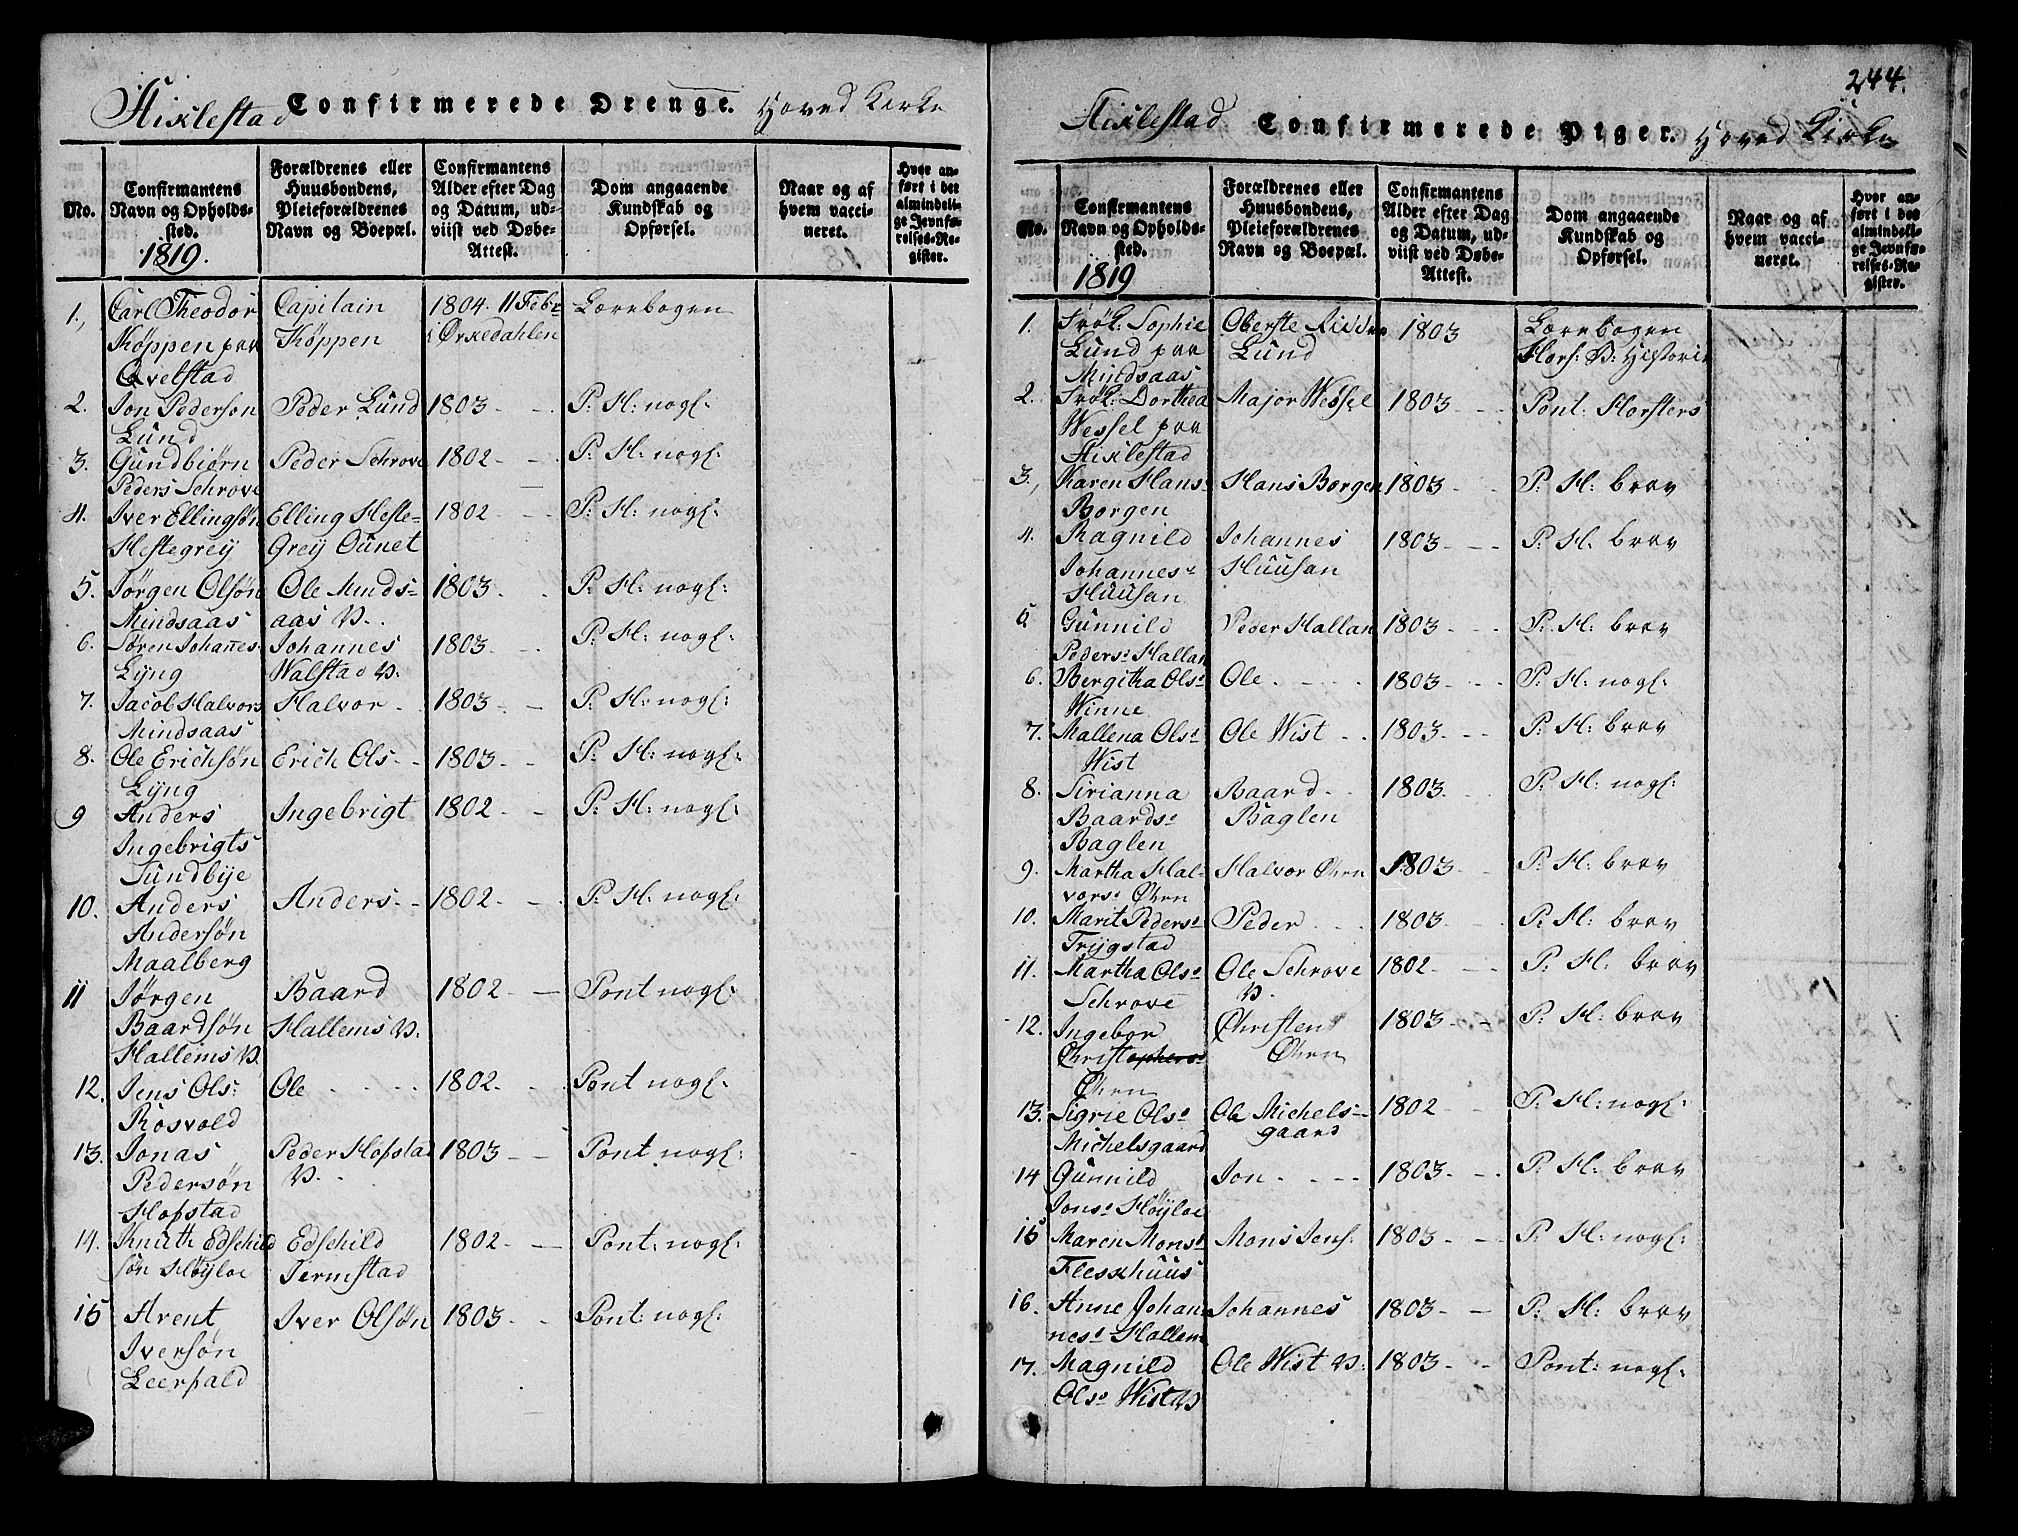 Stiklestad Confirmerede Drenge. Hoved Kirke
No.
Confirmantens Navn og Opholdssted.
1819.
Forældrenes eller Huusbondens, Pleieforældrenes Navn og Boepæl.
Confirmantens Alder efter Dag og Datum, udviist ved Døbe-Attest.
Dom angaaende Kundskab og Opførsel.
Naar og af hvem vaccineret.
Hvor anført i det almindelige Jevnførelses-Register.
1., Carl Theodor Capitain 1804. 11 Febr Lærebogen
Køppen paa Køppen i Ørkedahlen
Qvelstad
2. Jon Pederson Peder Lund 1803 - - P: H: nogl:
Lund
3. Gundbiørn Peder Schrove 1802 - - P: H: nogl:
Peders Schrove
4. Iver Ellingsøn Elling Heste= 1802 - - P: H: nogl:
Hestegrey Grey Ounet
5. Jørgen Olsøn Ole Minds= 1803 - - P: H: nogl:
Mindsaas aas V.
6. Søren Johañes Johannes 1803 - - P: H: nogl:
Lÿng Walstad V.
7. Jacob Halvors Halvor - 1803 - - P: H: nogl:
Mindsaas
8. Ole Erichsøn Erich Ols - - 1803 - - P: H: nogl:
Lÿng
9 Anders Ingebrigt 1802 - - P: H: nogl:
Ingebrigts
Sundbÿe
10. Anders Anders - - 1802 - - P: H: nogl:
Andersøn
Maalberg
11 Jørgen Baard 1802 - - Pont nogl:
Baardsøn Hallems V.
Hallems V.
12. Jens Ols: Ole - - - 1802 - - Pont nogl:
Rosvold
13. Jonas Peder Hofstad 1803 - - Pont nogl:
Pedersøn V.
Hofstad
14. Knuth Edschild Edschild 1802 - - Pont: nogl:
søn Høÿloe Termstad
15 Arent Iver Olsøn 1803 - - Pont: nogl:
Iversøn
Leerfald
244.
Stiklestad Confirmerede Piger. Hoved Kirke
No.
Confirmantens Navn og Opholdssted.
1819
Forældrenes eller Huusbondens, Pleieforældrenes Navn og Boepæl.
Confirmantens Alder efter Dag og Datum, udviist ved Døbe-Attest.
Dom angaaende Kundskab og Opførsel.
Naar og af hvem vaccineret.
Hvor anført i det almindelige Jevnførelses-Register.
1. Frøk: Sophie Oberste Ridder 1803 Lærebogen
Lund paa Lund Hors: B: Historie
Mindsaas
2. Frøk: Dorthea Major Wessel 1803 - - Pont: Horsters
Wessel paa
Stiklestad
3., Karen Hans: Hans Borgen 1803 - - P: H: brav
Borgen
4. Ragnild Johannes 1803 - - P: H: brav
Johannes: Huusan
Huusan
5 Gunnild Peder Hallan 1803 - - P: H: brav
Peders: Hallan
6. Bergitha Ols: Ole - - - 1803 - - P: H: nogl:
Winne
7. Mallena Ols: Ole Wist - - 1803 - - P: H: brav
Wist
8. Sirianna Baard - - 1803 - - P: H: nogl:
Baards: Baglen
Baglen
9. Martha Hal- Halvor Øhrn 1803 - - P: H: brav
vors: Øhrn
10. Marit Peders: Peder - - - 1803 - - P: H: brav
Trÿgstad
11. Martha Ols: Ole Schrove 1802 - - P: H: brav
Schrove V.
12. Ingebor Christen 1803 - - P: H: brav
Christophers: Øhrn
Øhrn
13. Sigrie Ols: Ole Michels- 1802 - P: H: nogl:
Michelsgaard gaard
14 Gunnild Jon - - - 1803 - - P: H: brav
Jons: Høÿloe
15 Maren Mons: Mons Jens: 1803 - - P: H: nogl:
Fleskhuus
16. Anne Johan Johannes 1803 - - P: H: brav
nes: Hallem
17. Magnild Ole Wist V: 1803 - - Pont: nogl:
Ols: Wist V